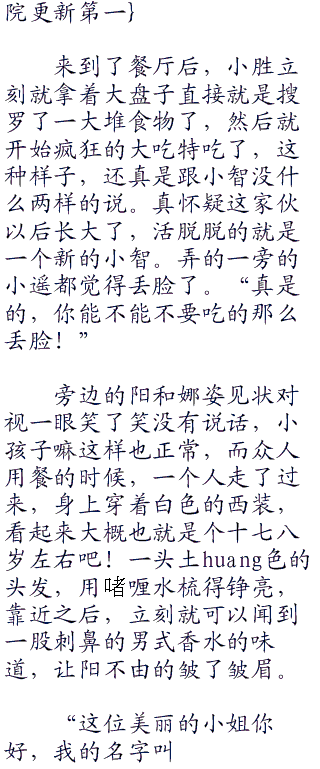 院更新第一}
来到了餐厅后，小胜立
刻就拿着大盘子直接就是搜
罗了一大堆食物了，然后就
开始疯狂的大吃特吃了，这
种样子，还真是跟小智没什
么两样的说。真怀疑这家伙
以后长大了，活脱脱的就是
一个新的小智。弄的一旁的
小遥都觉得丢脸了。“真是
的，你能不能不要吃的那么
丢脸！”
旁边的阳和娜姿见状对
视一眼笑了笑没有说话，小
孩子嘛这样也正常，而众人
用餐的时候，一个人走了过
来，身上穿着白色的西装，
看起来大概也就是个十七八
岁左右吧！一头土huang色的
头发，用啫喱水梳得铮亮，
靠近之后，立刻就可以闻到
一股刺鼻的男式香水的味
道，让阳不由的皱了皱眉。
“这位美丽的小姐你
好，我的名字叫